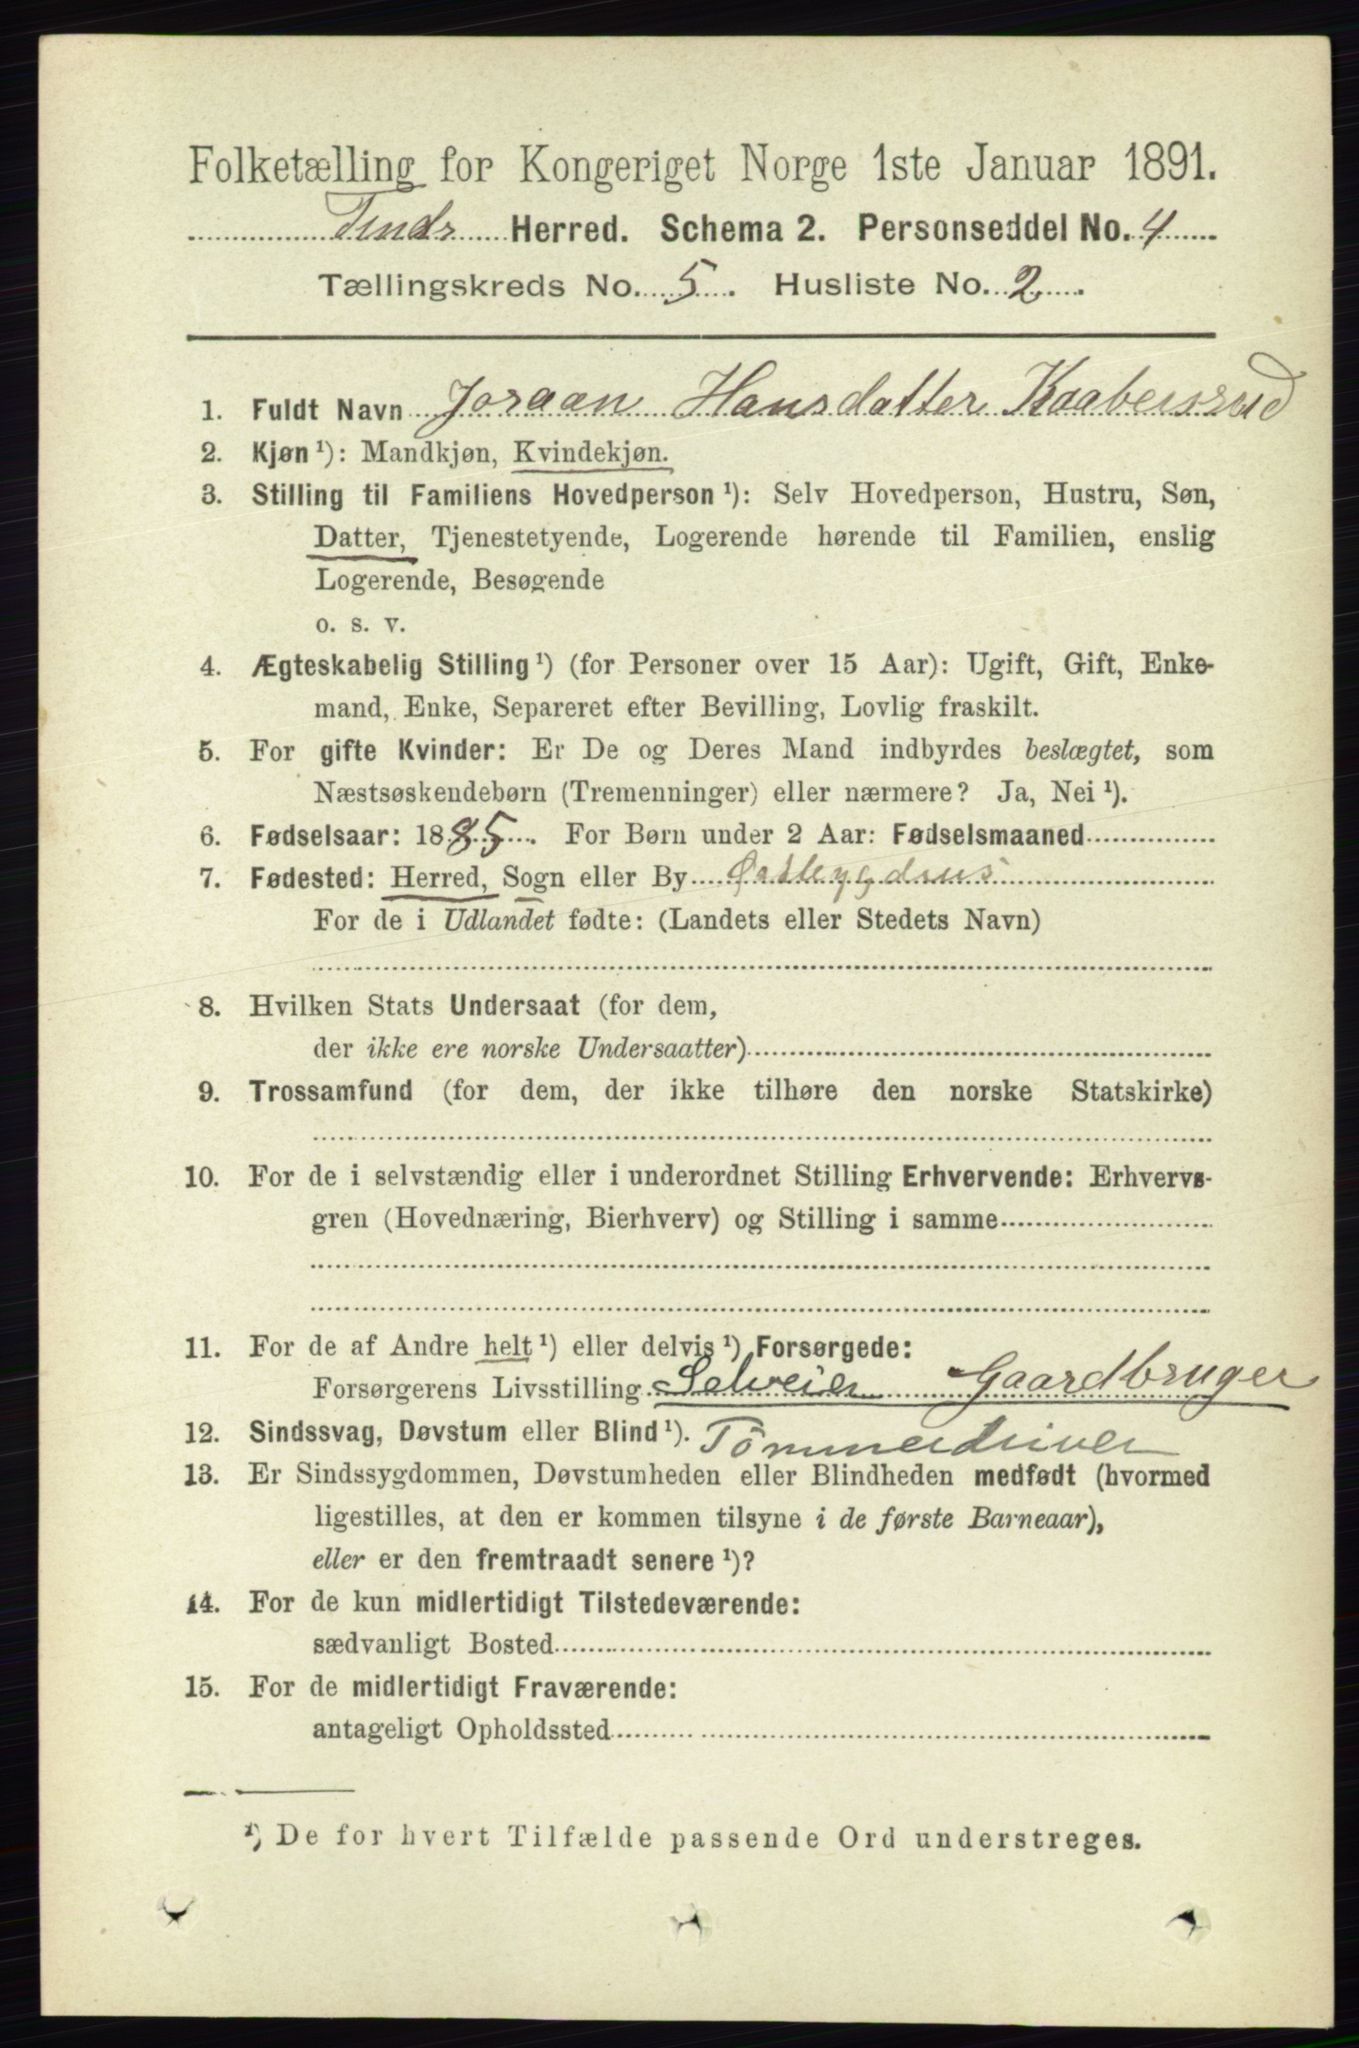 Folketælling for Kongeriget Norge 1ste Januar 1891.
Tinds Herred. Schema 2. Personseddel No. 4
Tællingskreds No. 5. Husliste No. 2.
1. Fuldt Navn Joraan Hansdatter
2. Kjøn ¹): Mandkjøn, Kvindekjøn.
3. Stilling til Familiens Hovedperson ¹): Selv Hovedperson, Hustru, Søn,
Datter, Tjenestetyende, Logerende hørende til Familien, enslig
Logerende, Besøgende
o. s. v.
4. Ægteskabelig Stilling ¹) (for Personer over 15 Aar): Ugift, Gift, Enke-
mand, Enke, Separeret efter Bevilling, Lovlig fraskilt.
5. For gifte Kvinder: Er De og Deres Mand indbyrdes beslægtet, som
Næstsøskendebørn (Tremenninger) eller nærmere? Ja, Nei ¹).
6. Fødselsaar: 1885. For Børn under 2 Aar: Fødselsmaaned
7. Fødested: Herred, Sogn eller By Østbygdens
For de i Udlandet fødte: (Landets eller Stedets Navn)
8. Hvilken Stats Undersaat (for dem,
der ikke ere norske Undersaatter)
9. Trossamfund (for dem, der ikke tilhøre den norske Statskirke)
10. For de i selvstændig eller i underordnet Stilling Erhvervende: Erhvervs-
gren (Hovednæring, Bierhverv) og Stilling i samme
11. For de af Andre helt ¹) eller delvis ¹) Forsørgede:
Forsørgerens Livsstilling Selveier Gaardbruger
12. Sindssvag, Døvstum eller Blind ¹). Tömmerdriver
13. Er Sindssygdommen, Døvstumheden eller Blindheden medfødt (hvormed
ligestilles, at den er kommen tilsyne i de første Barneaar),
eller er den fremtraadt senere ¹)?
14. For de kun midlertidigt Tilstedeværende:
sædvanligt Bosted
15. For de midlertidigt Fraværende:
antageligt Opholdssted
¹) De for hvert Tilfælde passende Ord understreges.